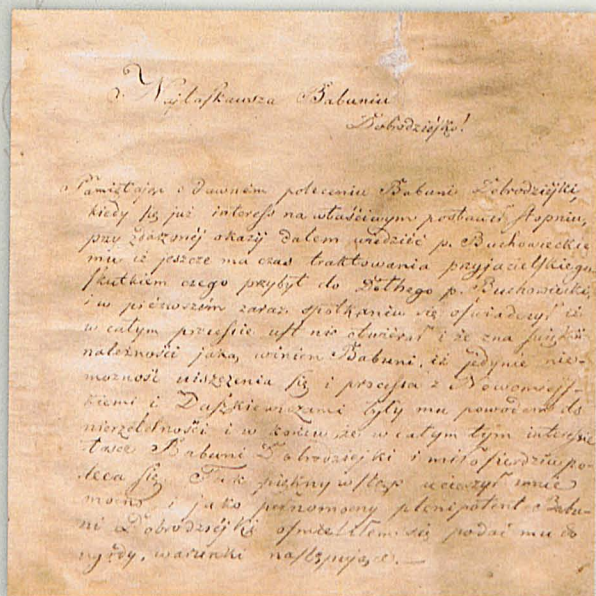 Najłaskawsza Babuniu
Dobrodziéjko!
Pamiętając o dawném poleceniu Babuni Dobrodziéjki,
kiedy się już interess na właściwym postawił stopniu,
przy zdarzonéj okazij dałem wiedziéć p. Buchowieckie
mu iż jeszcze ma czas traktowania przyjacielskiego
skutkiem czego przybył do p. Buchowiecki,
i w piérwszém zaraz spotkaniu się oświadczył iż
w całym processie ust nie otwiérał i że zna
należności jaką winien Babuni, iż jedynie nie-
możność uiszczenia się i processa z
kiemi i Daszkiewiczami były mu powodem do
i w końcu że w całym tym interessie
łasce Babuni Dobrodziejki i miłosierdziu po-
leca się. Tak piękny wstęp ucieszył mnie
mocno i jako pełnomocny plenipotent Babu-
ni Dobrodziéjki ośmieliłem się podać mu do
ugody, warunki następujące. —